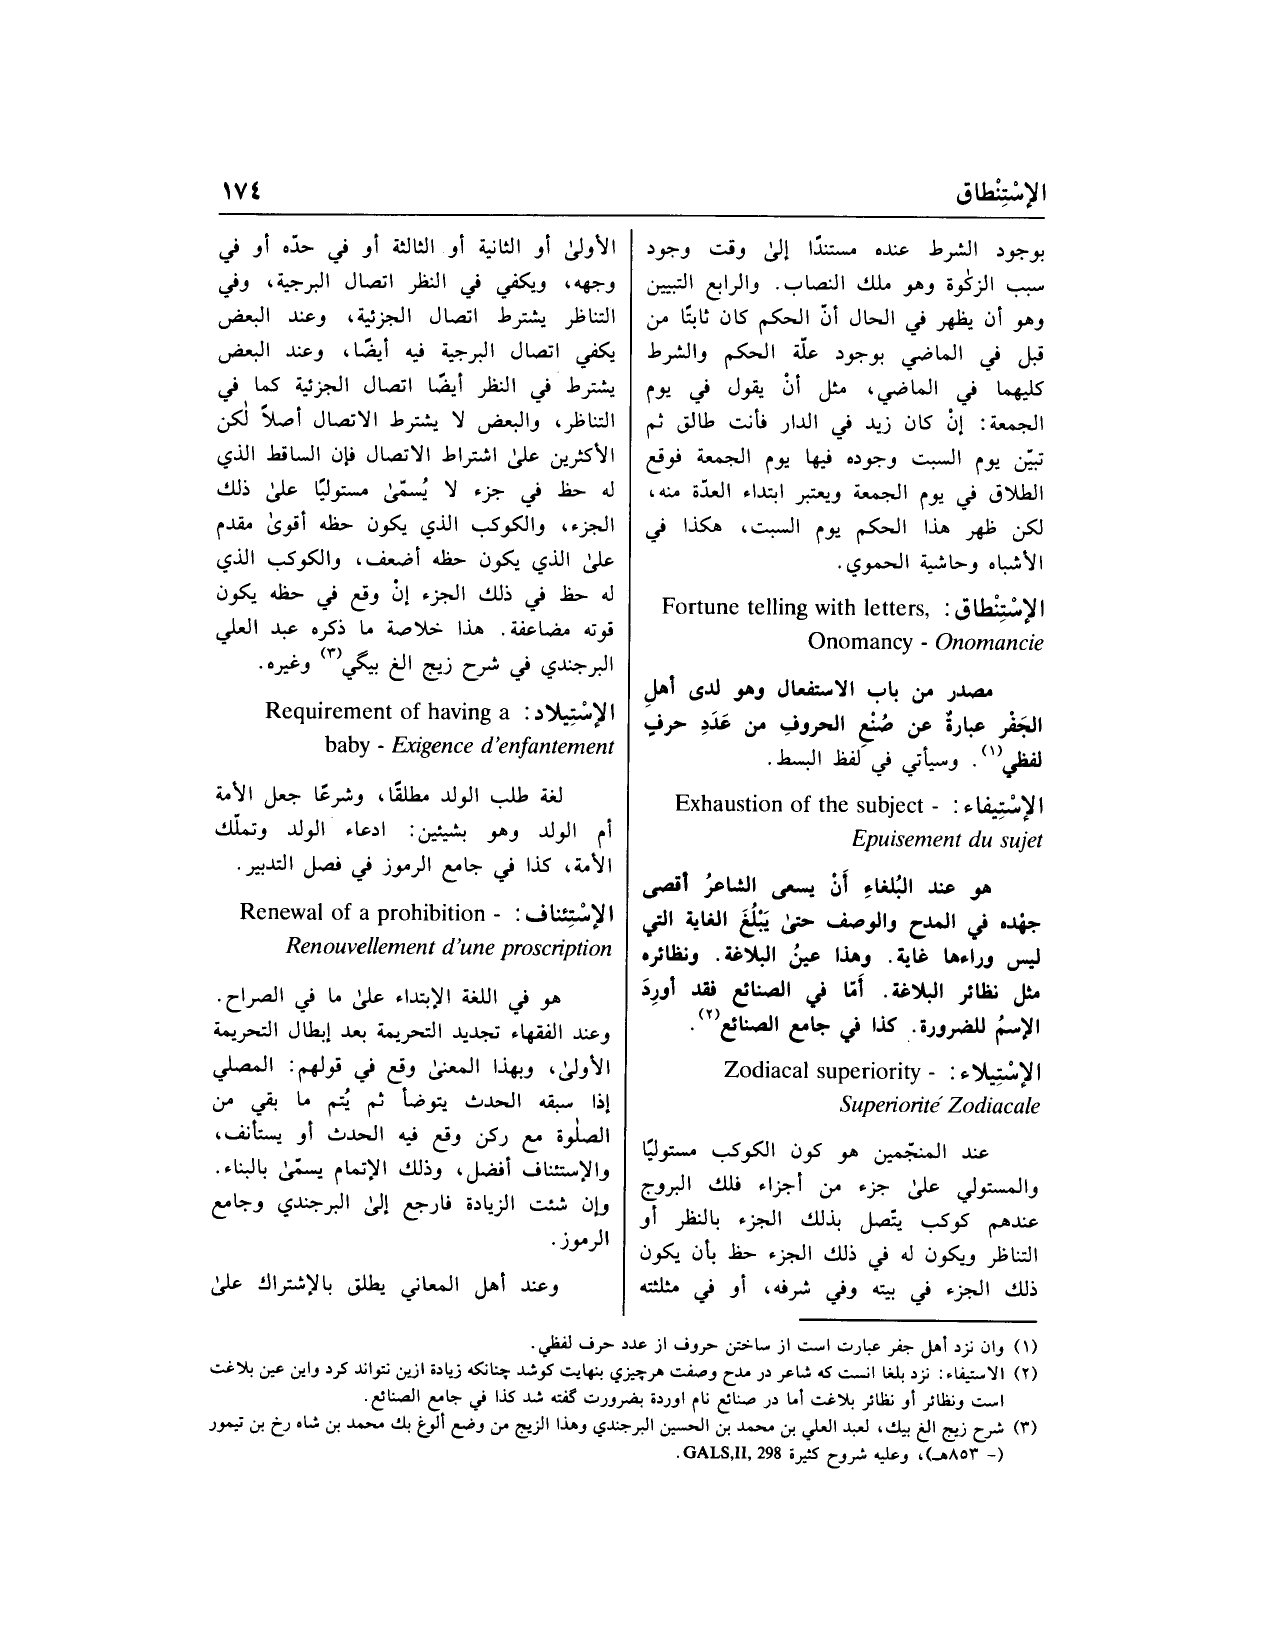 الإسْتِنْطاق
١٧٤
بوجود الشرط عنده مستندًا إلىٰ وقت وجود
سبب الزكٰوة وهو ملك النصاب. والرابع التبيين
وهو أن يظهر في الحال أنّ الحكم كان ثابتًا من
قبل في الماضي بوجود علّة الحكم والشرط
كليهما في الماضي، مثل أنْ يقول في يوم
الجمعة: إنْ كان زيد في الدار فأنت طالق ثم
تبيّن يوم السبت وجوده فيها يوم الجمعة فوقع
الطلاق في يوم الجمعة ويعتبر ابتداء العدّة منه،
لكن ظهر هذا الحكم يوم السبت، هكذا في
الأشباه وحاشية الحموي.
الإسْتِنْطاق: Fortune telling with letters,
Onomancy - Onomancie
مصدر من باب الاستفعال وهو لدى أهلِ
الجَفْر عبارةٌ عن صُنْعِ الحروفِ من عَدَدِ حرفٍ
لفظي(١). وسيأتي في لفظ البسط.
الإسْتِيفاء: Exhaustion of the subject -
Epuisement du sujet
هو عند البُلغاءِ أَنْ يسعى الشاعرُ أقصى
جهْده في المدح والوصف حتىٰ يَبْلُغَ الغاية التي
ليس وراءها غاية. وهذا عينُ البلاغة. ونظائره
مثل نظائر البلاغة. أمّا في الصنائع فقد أورِدَ
الإسمُ للضرورة. كذا في جامع الصنائع(٢).
الإسْتِيلاء: Zodiacal superiority -
Superiorité Zodiacale
عند المنجّمين هو كون الكوكب مستوليًا
والمستولي علىٰ جزء من أجزاء فلك البروج
عندهم كوكب يتّصل بذلك الجزء بالنظر أو
التناظر ويكون له في ذلك الجزء حظ بأن يكون
ذلك الجزء في بيته وفي شرفه، أو في مثلثته
الأولىٰ أو الثانية أو الثالثة أو في حدّه أو في
وجهه، ويكفي في النظر اتصال البرجية، وفي
التناظر يشترط اتصال الجزئية، وعند البعض
يكفي اتصال البرجية فيه أيضًا، وعند البعض
يشترط في النظر أيضًا اتصال الجزئية كما في
التناظر، والبعض لا يشترط الاتصال أصلاً لٰكن
الأكثرين علىٰ اشتراط الاتصال فإن الساقط الذي
له حظ في جزء لا يُسمّىٰ مستوليًا علىٰ ذلك
الجزء، والكوكب الذي يكون حظه أقوىٰ مقدم
علىٰ الذي يكون حظه أضعف، والكوكب الذي
له حظ في ذلك الجزء إنْ وقع في حظه يكون
قوته مضاعفة. هذا خلاصة ما ذكره عبد العلي
البرجندي في شرح زيج الغ بيگي(٣) وغيره.
الإسْتِيلاد: Requirement of having a
baby - Exigence d'enfantement
لغة طلب الولد مطلقًا، وشرعًا جعل الأمة
أم الولد وهو بشيئين: ادعاء الولد وتملّك
الأمة، كذا في جامع الرموز في فصل التدبير.
الإسْتِئناف: Renewal of a prohibition -
Renouvellement d'une proscription
هو في اللغة الإبتداء علىٰ ما في الصراح.
وعند الفقهاء تجديد التحريمة بعد إبطال التحريمة
الأولىٰ، وبهذا المعنىٰ وقع في قولهم: المصلي
إذا سبقه الحدث يتوضأ ثم يُتم ما بقي من
الصلٰوة مع ركن وقع فيه الحدث أو يستأنف،
والإستئناف أفضل، وذلك الإتمام يسمّىٰ بالبناء.
وإن شئت الزيادة فارجع إلىٰ البرجندي وجامع
الرموز.
وعند أهل المعاني يطلق بالإشتراك علىٰ
(١) وان نزد أهل جفر عبارت است از ساختن حروف از عدد حرف لفظي.
(٢) الاستيفاء: نزد بلغا انست كه شاعر در مدح وصفت هرچيزي بنهايت كوشد چنانكه زيادة ازين نتواند كرد واين عين بلاغت
است ونظائر أو نظائر بلاغت أما در صنائع نام اوردة بضرورت گفته شد كذا في جامع الصنائع.
(٣) شرح زيج الغ بيك، لعبد العلي بن محمد بن الحسين البرجندي وهذا الزيج من وضع ألوغ بك محمد بن شاه رخ بن تيمور
(- ٨٥٣هـ)، وعليه شروح كثيرة GALS,II, 298.